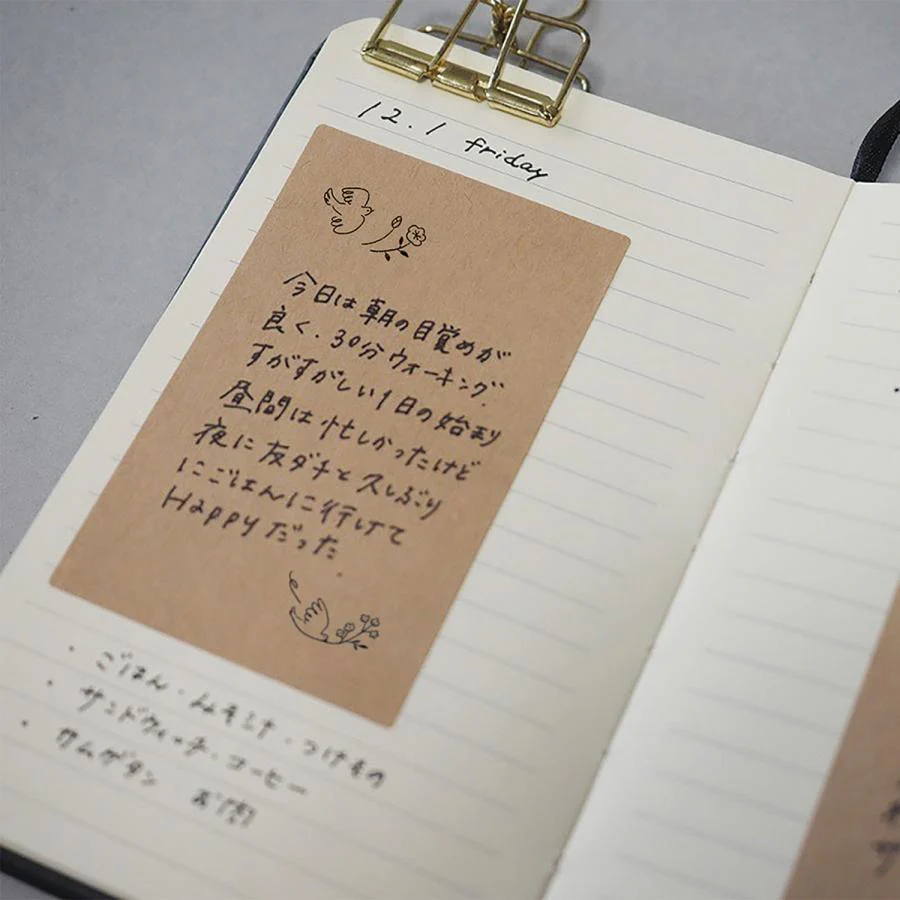 12.1 friday
今日は朝の目覚めが
良く、30分ウォーキング
すがすがしい1日の始まり
昼間は忙しかったけど
夜に友ダチと久しぶり
にごはんに行けて
Happyだった.
・ごはん・みそシル・つけもの
・サンドウィッチ・コーヒー
・サムゲタン